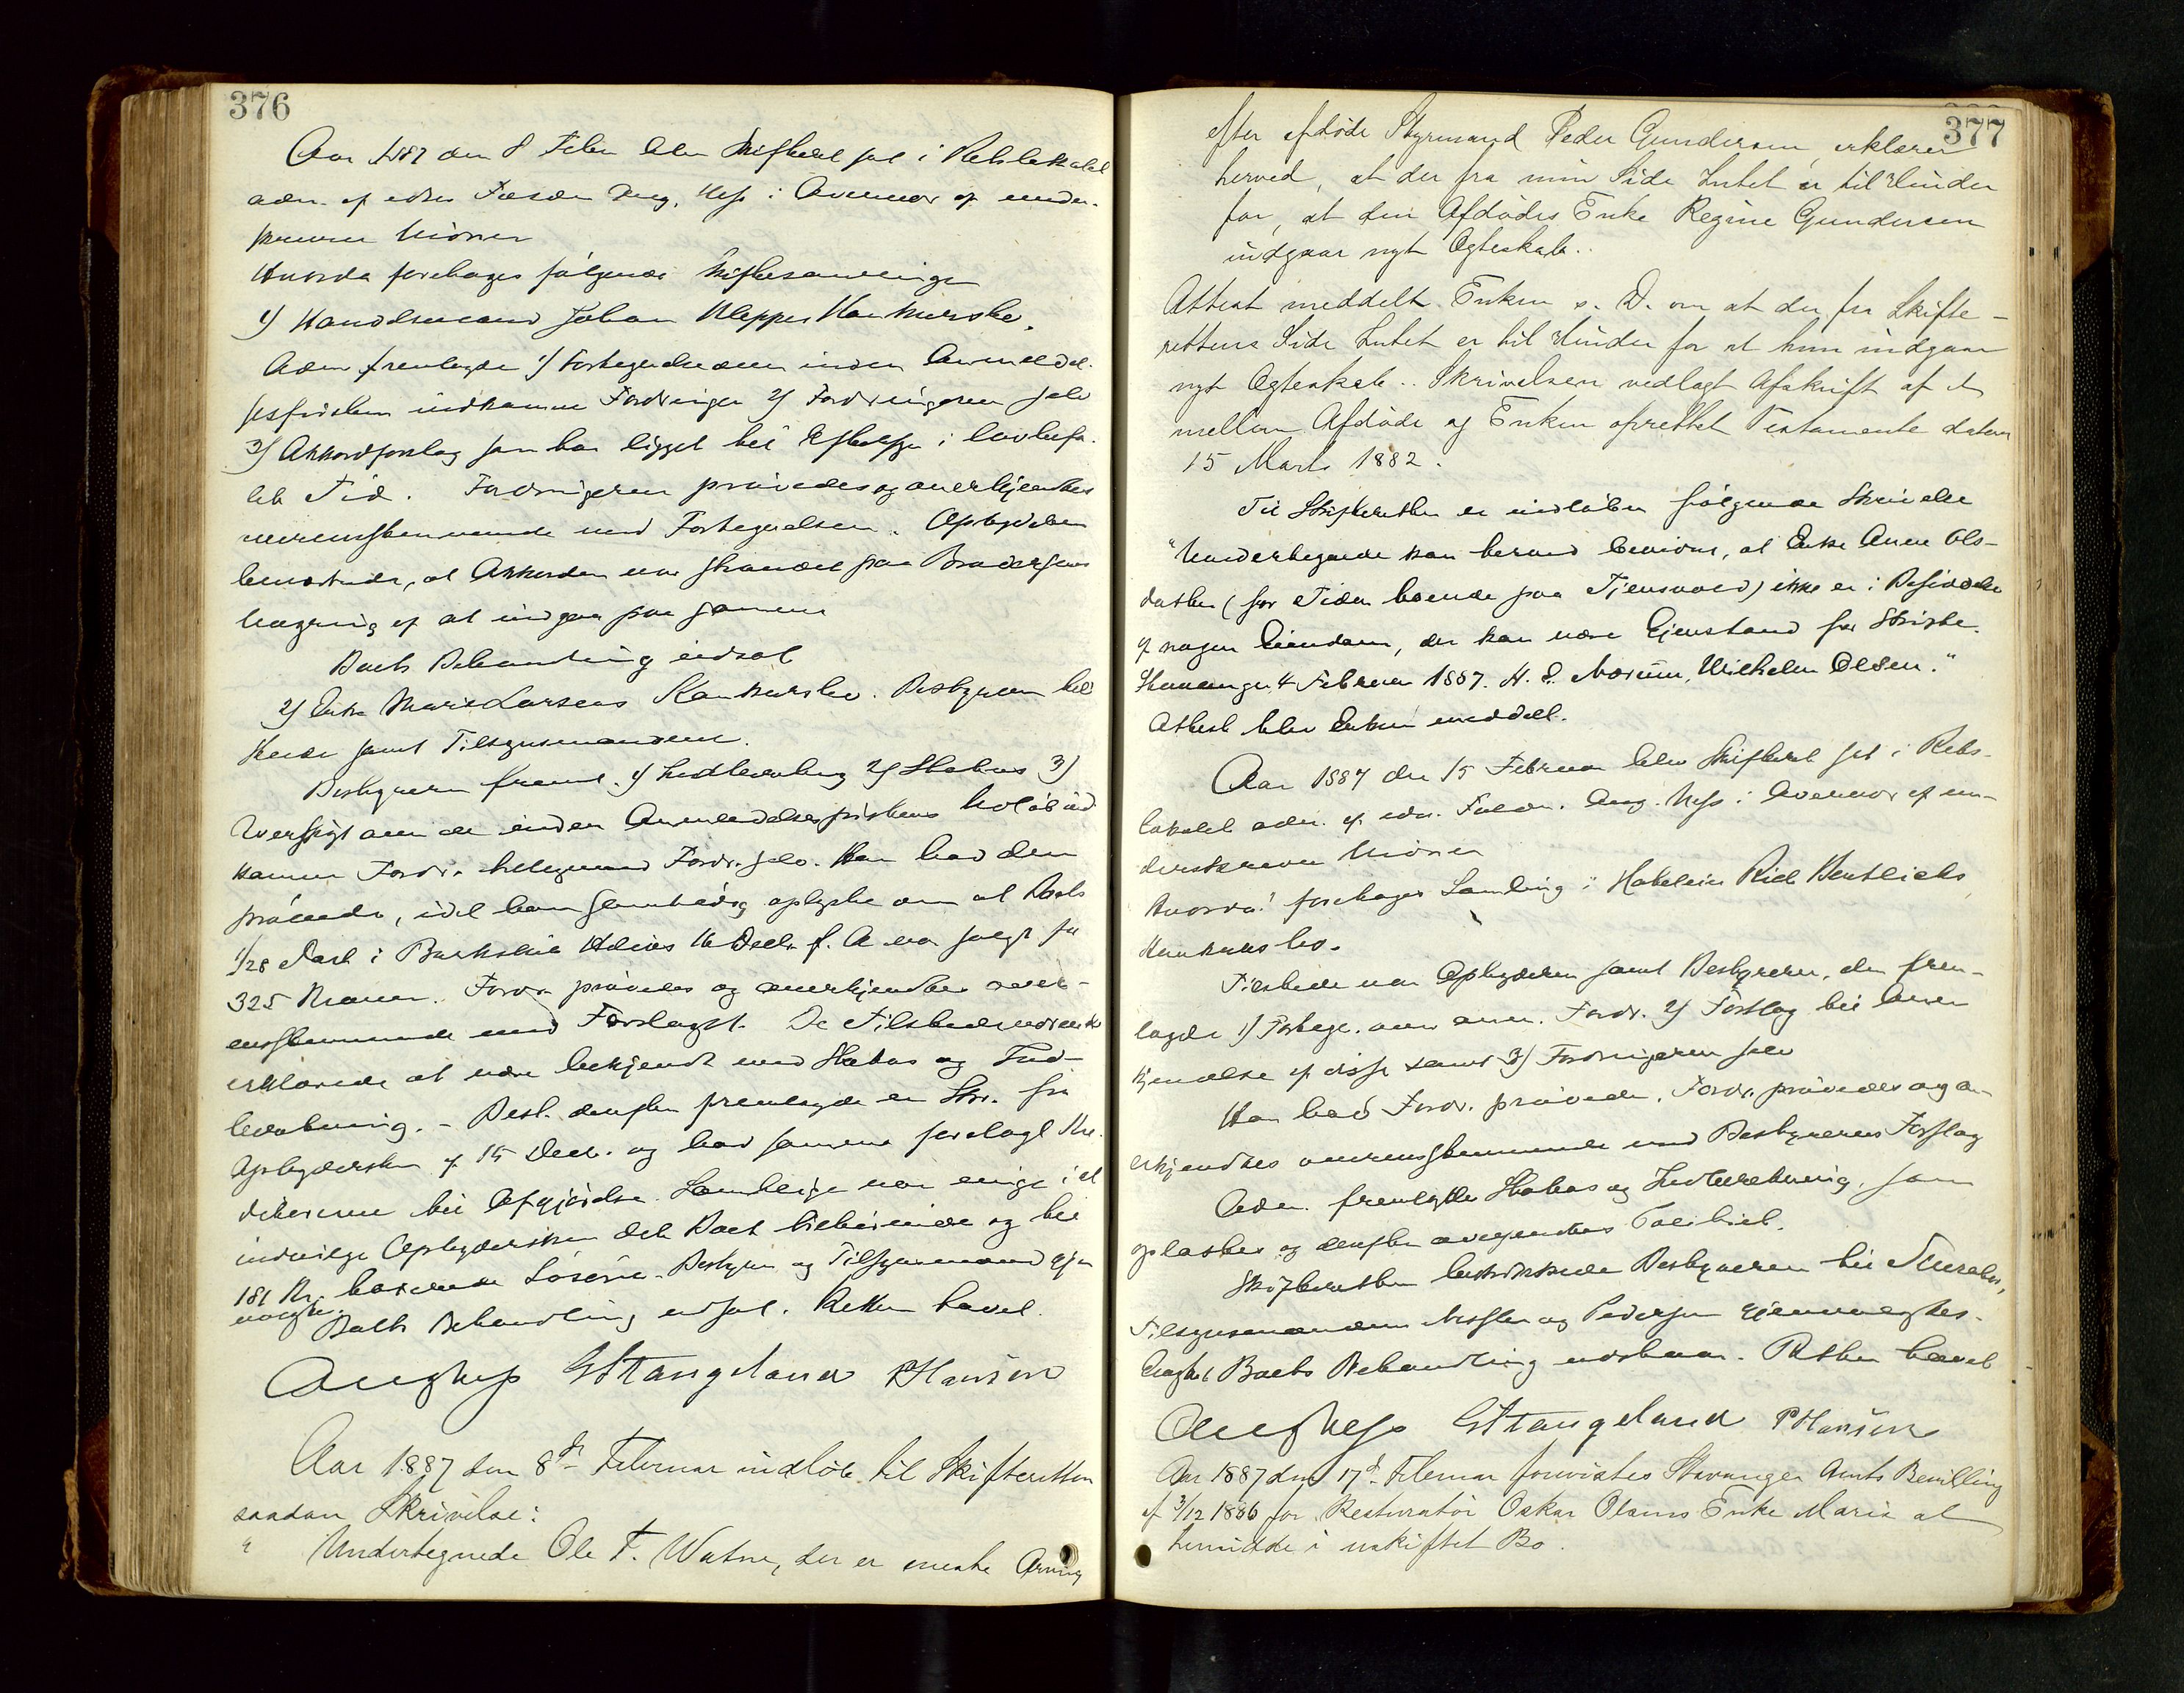 376
Aar 1887 den 8 Febr blev Skifteret sat i Retslokalet
adm. af edsv. Fuldm. Aug. Hess i Overvær af under-
skrevne Vidner
Hvorda foretoges følgende Skiftesamlinger
1) Handelsmand Johan Kleppes Konkursbo.
Adm. fremlagde 1) Fortegnelse over inden Anmeldel-
sesfristen indkomne Fordringer 2) Fordringerne selv
3) Akkordforslag som har ligget til Eftersyn i lovbefa-
let Tid. Fordringerne prøvedes og anerkjendtes
overensstemmende med Fortegnelsen. Opbyderen
bemærkede, at Akkorden var strandet paa Broderens
Vægring af at indgaa paa samme
Boets Behandling udsat
2) Enke Marie Larsens Konkursbo. Bestyreren til
stede samt Tilsynsmændene.
Bestyreren freml. 1) Indberetning 2) Status 3)
Oversigt over de inden Anmeldelsesfristens Udløb ind
komne Fordr. tilligemed Fordr. selv. Han bad dem
prøvede, idet han samtidig oplyste om at Boets
1/28 Part i Barkskib 16 Decbr f. A var solgt for
325 Kroner. Fordr prøvedes og anerkjendtes over-
ensstemmende med Forslaget. De Tilstedeværende
erklærede at være bekjendt med Status og Ind-
beretning. - Best. dernæst fremlagde en Skr. fra
Opbydersken af 15 Decb. og bad samme forelagt Kre-
ditorerne til Afgjørelse. Samtlige var enige i at
indvilge Opbydersken det Boet tilhørende og til
181 Kr. taxerede Løsøre. Bestyrer og Tilsynsmænd gjen
valgtes.
Boets Behandling udsat. Retten hævet.
Aug Hess GStangeland PHansen
Aar 1887 den 8de Februar indløb til Skifteretten
saadan Skrivelse:
" Undertegnede Ole T. Watne, der er eneste Arving
377
efter afdøde Styrmand Peder Gundersen, erklærer
herved, at der fra min Side Intet er til Hinder
for, at den Afdødes Enke Regine Gundersen
indgaar nyt Ægteskab..
Attest meddelt Enken s. D. om at der fra Skifte-
rettens Side Intet er til Hinder for at hun indgaar
nyt Ægteskab.. Skrivelsen vedlagt Afskrift af et
mellem Afdøde og Enken oprettet Testamente dateret
15 Marts 1882.
Til Skifteretten er indløben følgende Skrivelse
"Undertegnede kan herved bevidne, at Enke Anne Ols-
datter (for Tiden boende paa Tjensvold) ikke er i Besiddelse
af nogen Eiendom, der kan være Gjenstand for Skifte.
Stavanger 4 Februar 1887. H. S. Wilhelm Olsen."
Attest blev Enken meddelt.
Aar 1887 den 15 Februar blev Skifteret sat i Rets-
lokalet adm. af edsv. Fuldm. Aug. Hess i Overvær af un-
derskrevne Vidner
Hvorda! foretoges Samling i
Konkursbo.
Tilstede var Opbyderen samt Bestyreren, der frem-
lagde 1) Forteg. over anm. Fordr. 2) Forslag til Aner
kjendelse af disse samt 3) Fordringerne selv
Han bad Fordr. prøvede. Fordr. prøvedes og an-
erkjendtes overensstemmende med Bestyrerens Forslag
Adm. fremlagde Status og Indberetning, som
oplæstes og dernæst
Skifteretten beskikkede Bestyreren til
Tilsynsmændene og Pedersen gjenvalgtes.
Boets Behandling udsattes. Retten hævet
Aug Hess GStangeland PHansen
Aar 1887 den 17d Februar forevistes Stavanger Amts Bevilling
af 3/12 1886 for Restauratør Oskar Olsens Enke Marie at
hensidde i uskiftet Bo.